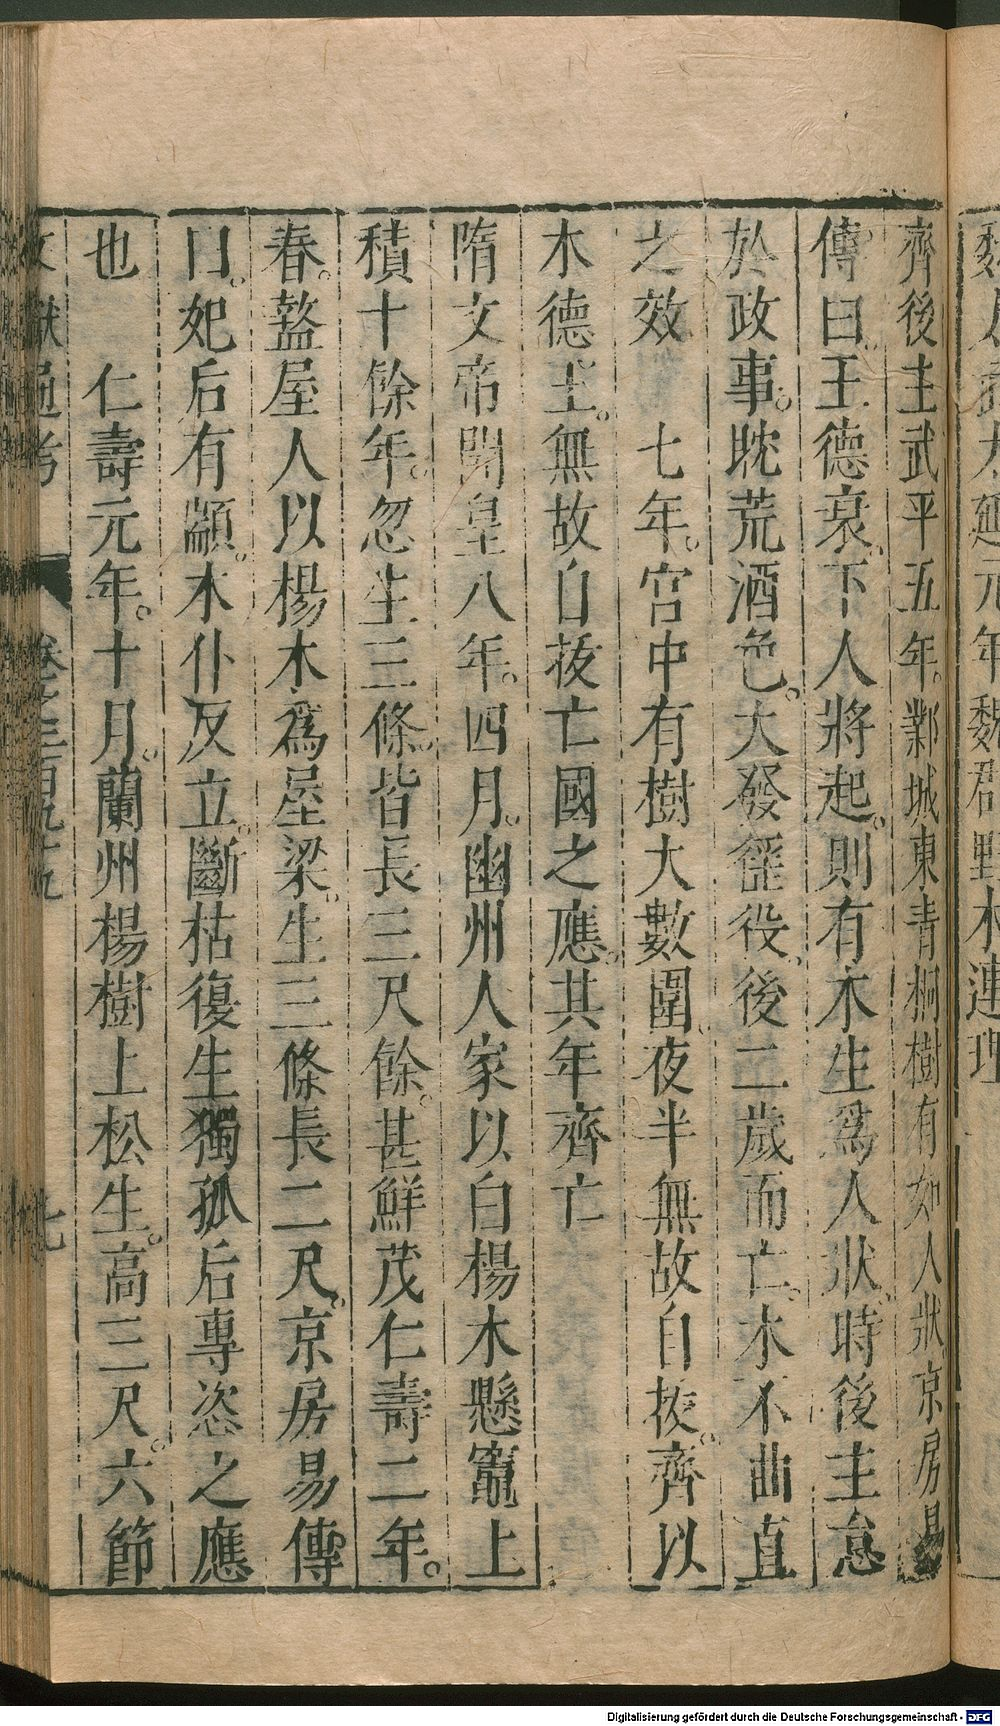 齊後主武平五年。鄴城東青桐樹有如人狀京房易
傳曰。王德衰。下人將起。則有木生爲人狀。時後主怠
於政事。眈荒酒色。大發徭役。後二歲而亡。木不曲直
之效　七年。宮中有樹大數圍。夜半無故自拔。齊以
木德王。無故自拔亡國之應。其年齊亡
隋文帝開皇八年。四月。幽州人家以白楊木懸竈上
積十餘年。忽生三條。皆長三尺餘。甚鮮茂仁壽二年。
春。盩屋人以楊木爲屋梁。生三條長二尺。京房易傳
曰。妃后有顓。木仆反立。斷枯復生獨孤后專恣之應
也　仁壽元年。十月。蘭州楊樹上松生。高三尺。六節
文獻通考　卷之三百　七
延元年魏郡野木連理
Digitalisierung gefördert durch die Deutsche Forschungsgemeinschaft - DFG